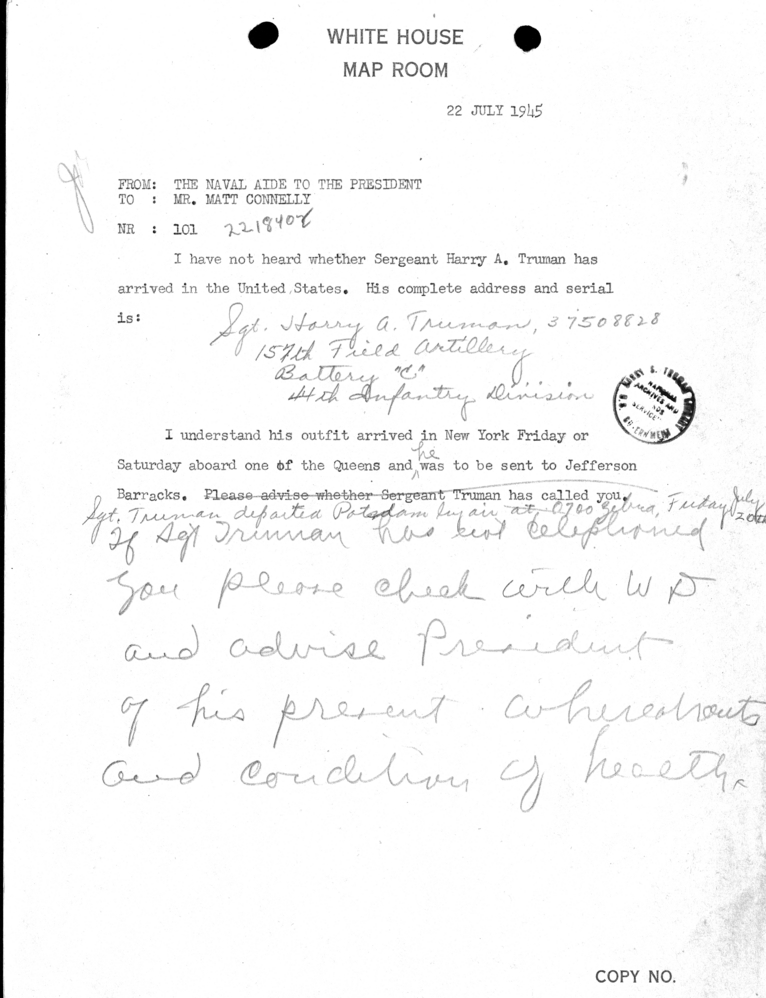 WHITE HOUSE
MAP ROOM
22 JULY 1945
FROM: THE NAVAL AIDE TO THE PRESIDENT
TO : MR. MATT CONNELLY
NR : 101 221840Z
I have not heard whether Sergeant Harry A. Truman has
arrived in the United States. His complete address and serial
is: Sgt. Harry A. Truman, 37508828
157th Field Artillery
Battery "C"
44th Infantry Division
I understand his outfit arrived in New York Friday or
he
Saturday aboard one of the Queens and was to be sent to Jefferson
Barracks. Please advise whether Sergeant Truman has called you.
Sgt. Truman departed Potsdam by air at 0700 Zebra, Friday July 20th
If Sgt Truman has not telephoned
you please check with W D
and advise President
of his present whereabouts
and condition of health.
HARRY S. TRUMAN LIBRARY
NATIONAL
ARCHIVES AND
COPY NO.